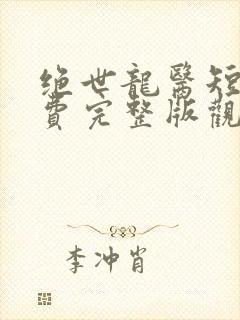 绝世龍醫短
費完整版觀
李冲肖